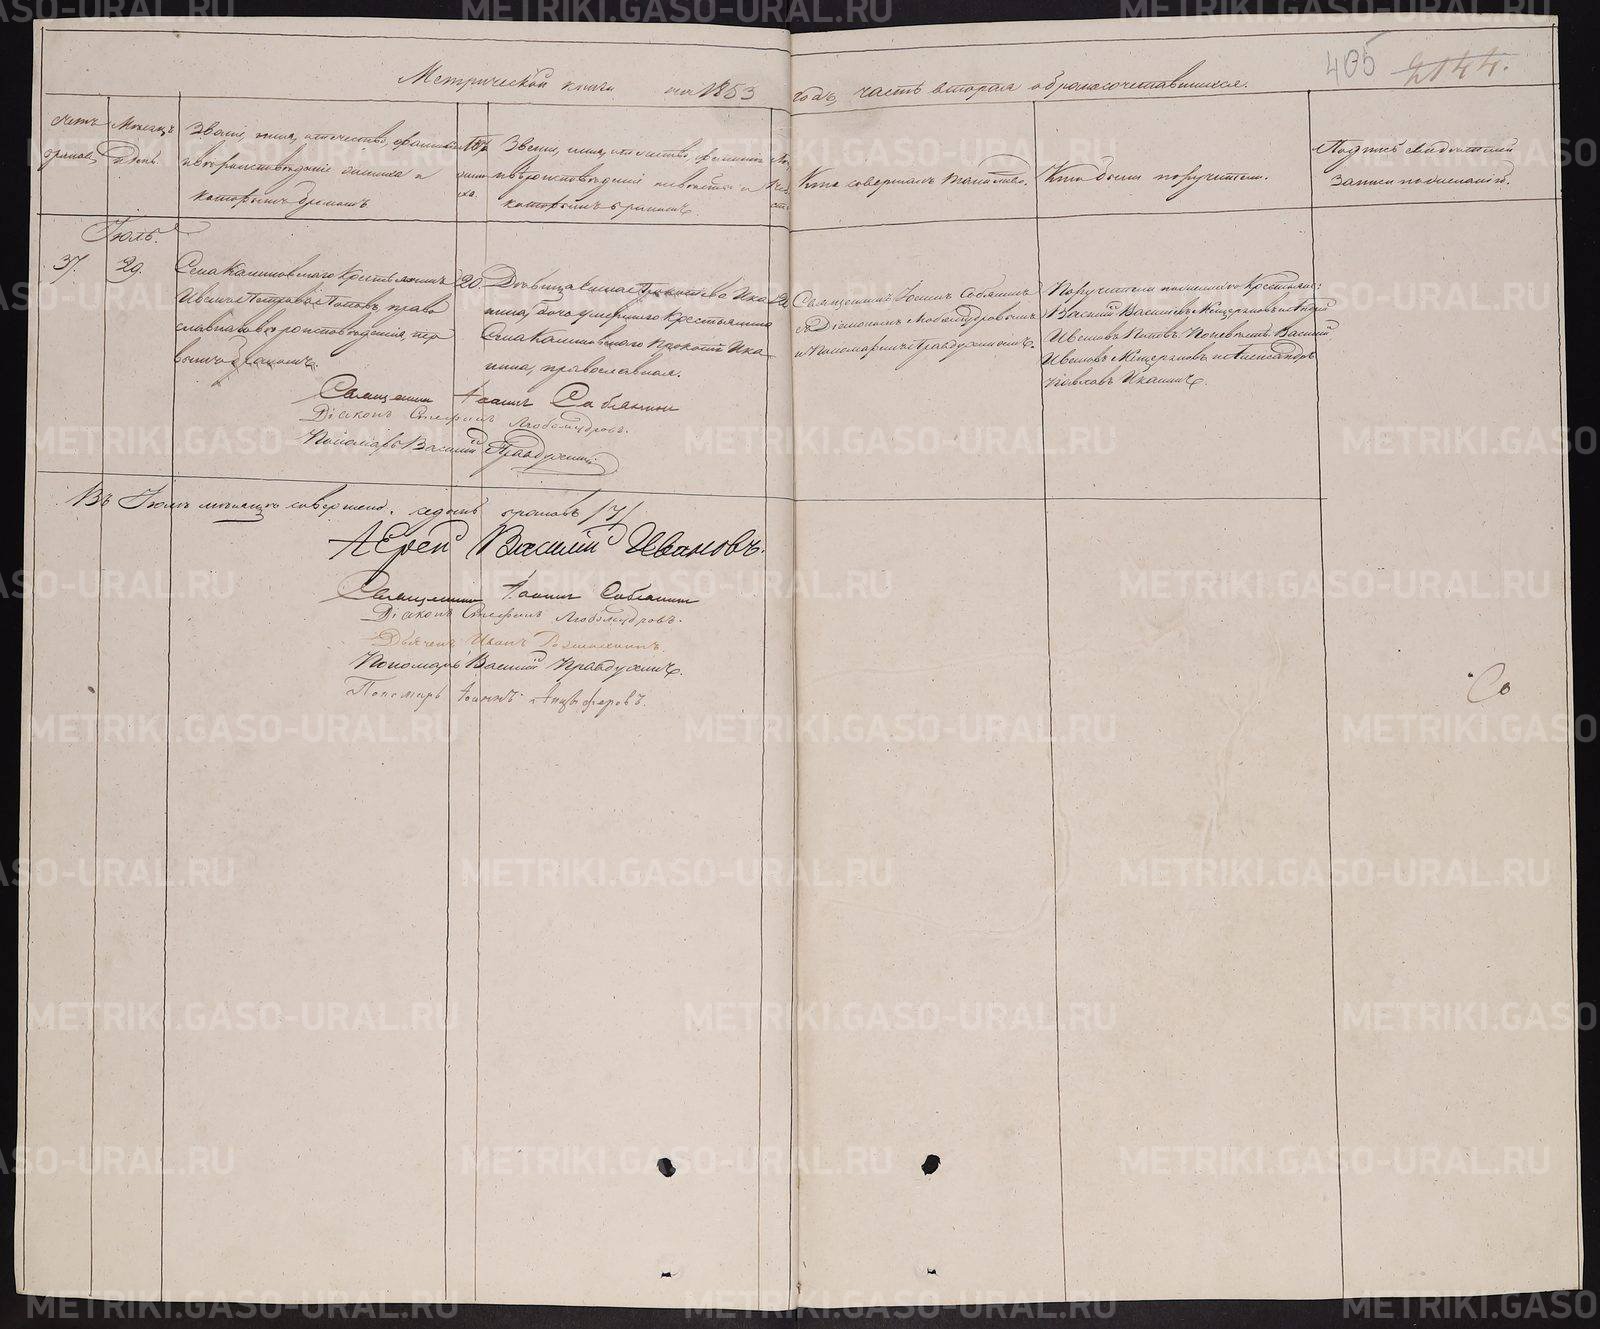 405 2144.
Метрической книги на 1853 года, часть вторая о бракосочетавшихся.
Счетъ браковъ,
Мѣсяцъ и день.
Званіе, имя, отчество, фамилія
и вѣроисповѣданіе жениха и
которымъ бракомъ
Званіе, имя, отчество, фамилія
и вѣроисповѣданіе невѣсты и
которымъ бракомъ.
Кто совершалъ таинство.
Кто были поручители.
Подпись свидѣтелей
записи по желанію.
Іюль.
37.
29.
Села Калиновскаго крестьянинъ
Иванъ Петровъ Поповъ, право
славнаго вѣроисповѣданія, пер
вымъ бракомъ.
20
Дѣвица
нина, бого умершаго крестьянина
Села Калиновскаго Прокопія Ика
нина, православная.
20
Священникъ Іоаннъ Собянинъ
съ Діакономъ Любомудровымъ
и Пономаремъ Правдухинымъ.
Поручители по женихѣ Крестьяне:
Василій Васильевъ Мещеряковъ и Андрей
Ивановъ Поповъ. По невѣстѣ: Василій
Ивановъ Мещеряковъ и Александръ
Павловъ Иканинъ.
Священникъ Іоаннъ Собянинъ
Діаконъ Стефанъ Любомудровъ.
Пономарь Василій Правдухинъ
Въ Іюлѣ мѣсяцѣ совершено седмь браковъ /7/
Іерей Василій Ивановъ.
Священникъ Іоаннъ Собянинъ
Діаконъ Стефанъ Любомудровъ.
Дьячекъ Иванъ
Пономарь Василій Правдухинъ.
Пономарь Іоаннъ Анцыферовъ.
Со
METRIKI.GASO-URAL.RU